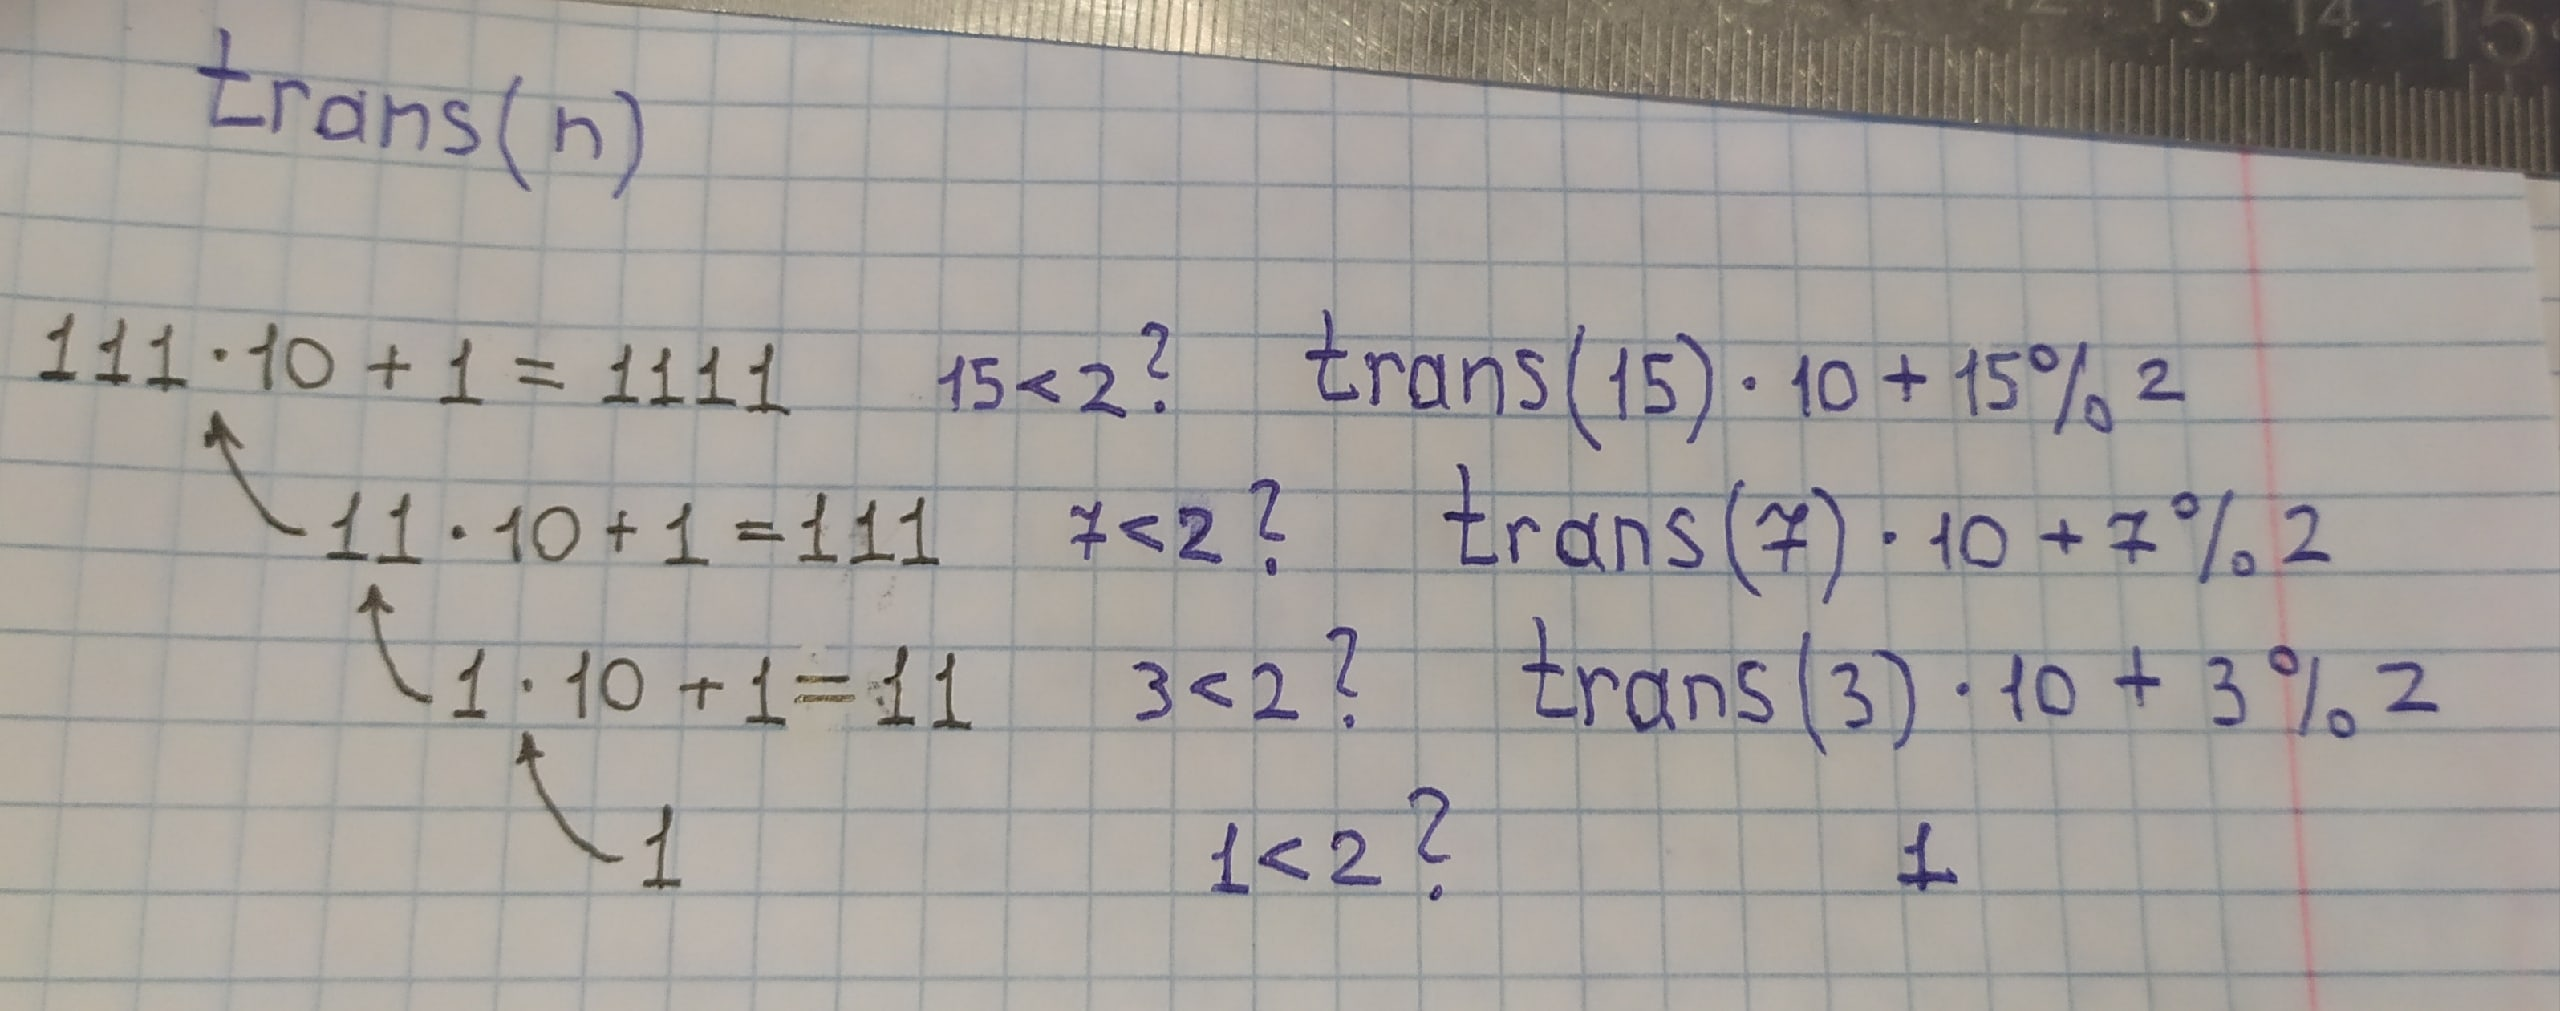 12 13 14 15
trans(n)
111·10+1=1111 15<2? trans(15)·10+15%2
11·10+1=111 7<2? trans(7)·10+7%2
1·10+1=11 3<2? trans(3)·10+3%2
1 1<2? 1